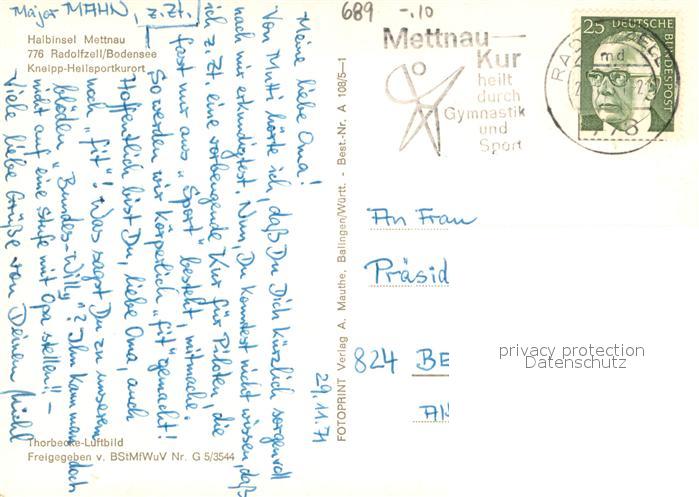 Major MAHN, z. Zt.
Halbinsel Mettnau
776 Radolfzell/Bodensee
Kneipp-Heilsportkurort
29.11.71
Meine liebe Oma!
Von Mutti hörte ich, daß Du Dich kürzlich sorgenvoll
nach mir erkundigtest. Nun, Du konntest nicht wissen, daß
ich z. Zt. eine vorbeugende Kur für Piloten, die
fast nur aus "Sport" besteht, mitmache.
So werden wir körperlich "fit" gemacht!
Hoffentlich bist Du, liebe Oma, auch
noch "fit"! Was sagst Du zu unserem
blöden "Bundes-Willy"? Ihn kann man doch
nicht auf eine Stufe mit Opa stellen!! –
Viele liebe Grüße von Deinem
Thorbecke-Luftbild
Freigegeben v. BStMfWuV Nr. G 5/3544
FOTOPRINT Verlag A. Mauthe, Balingen/Württ. - Best.-Nr. A 108/5—1
689 -.10
Mettnau
Kur
heilt
durch
Gymnastik
und
Sport
RADOLFZELL
md
776
25 DEUTSCHE
BUNDESPOST
An Frau
Präsid
824 BE
privacy protection
Datenschutz